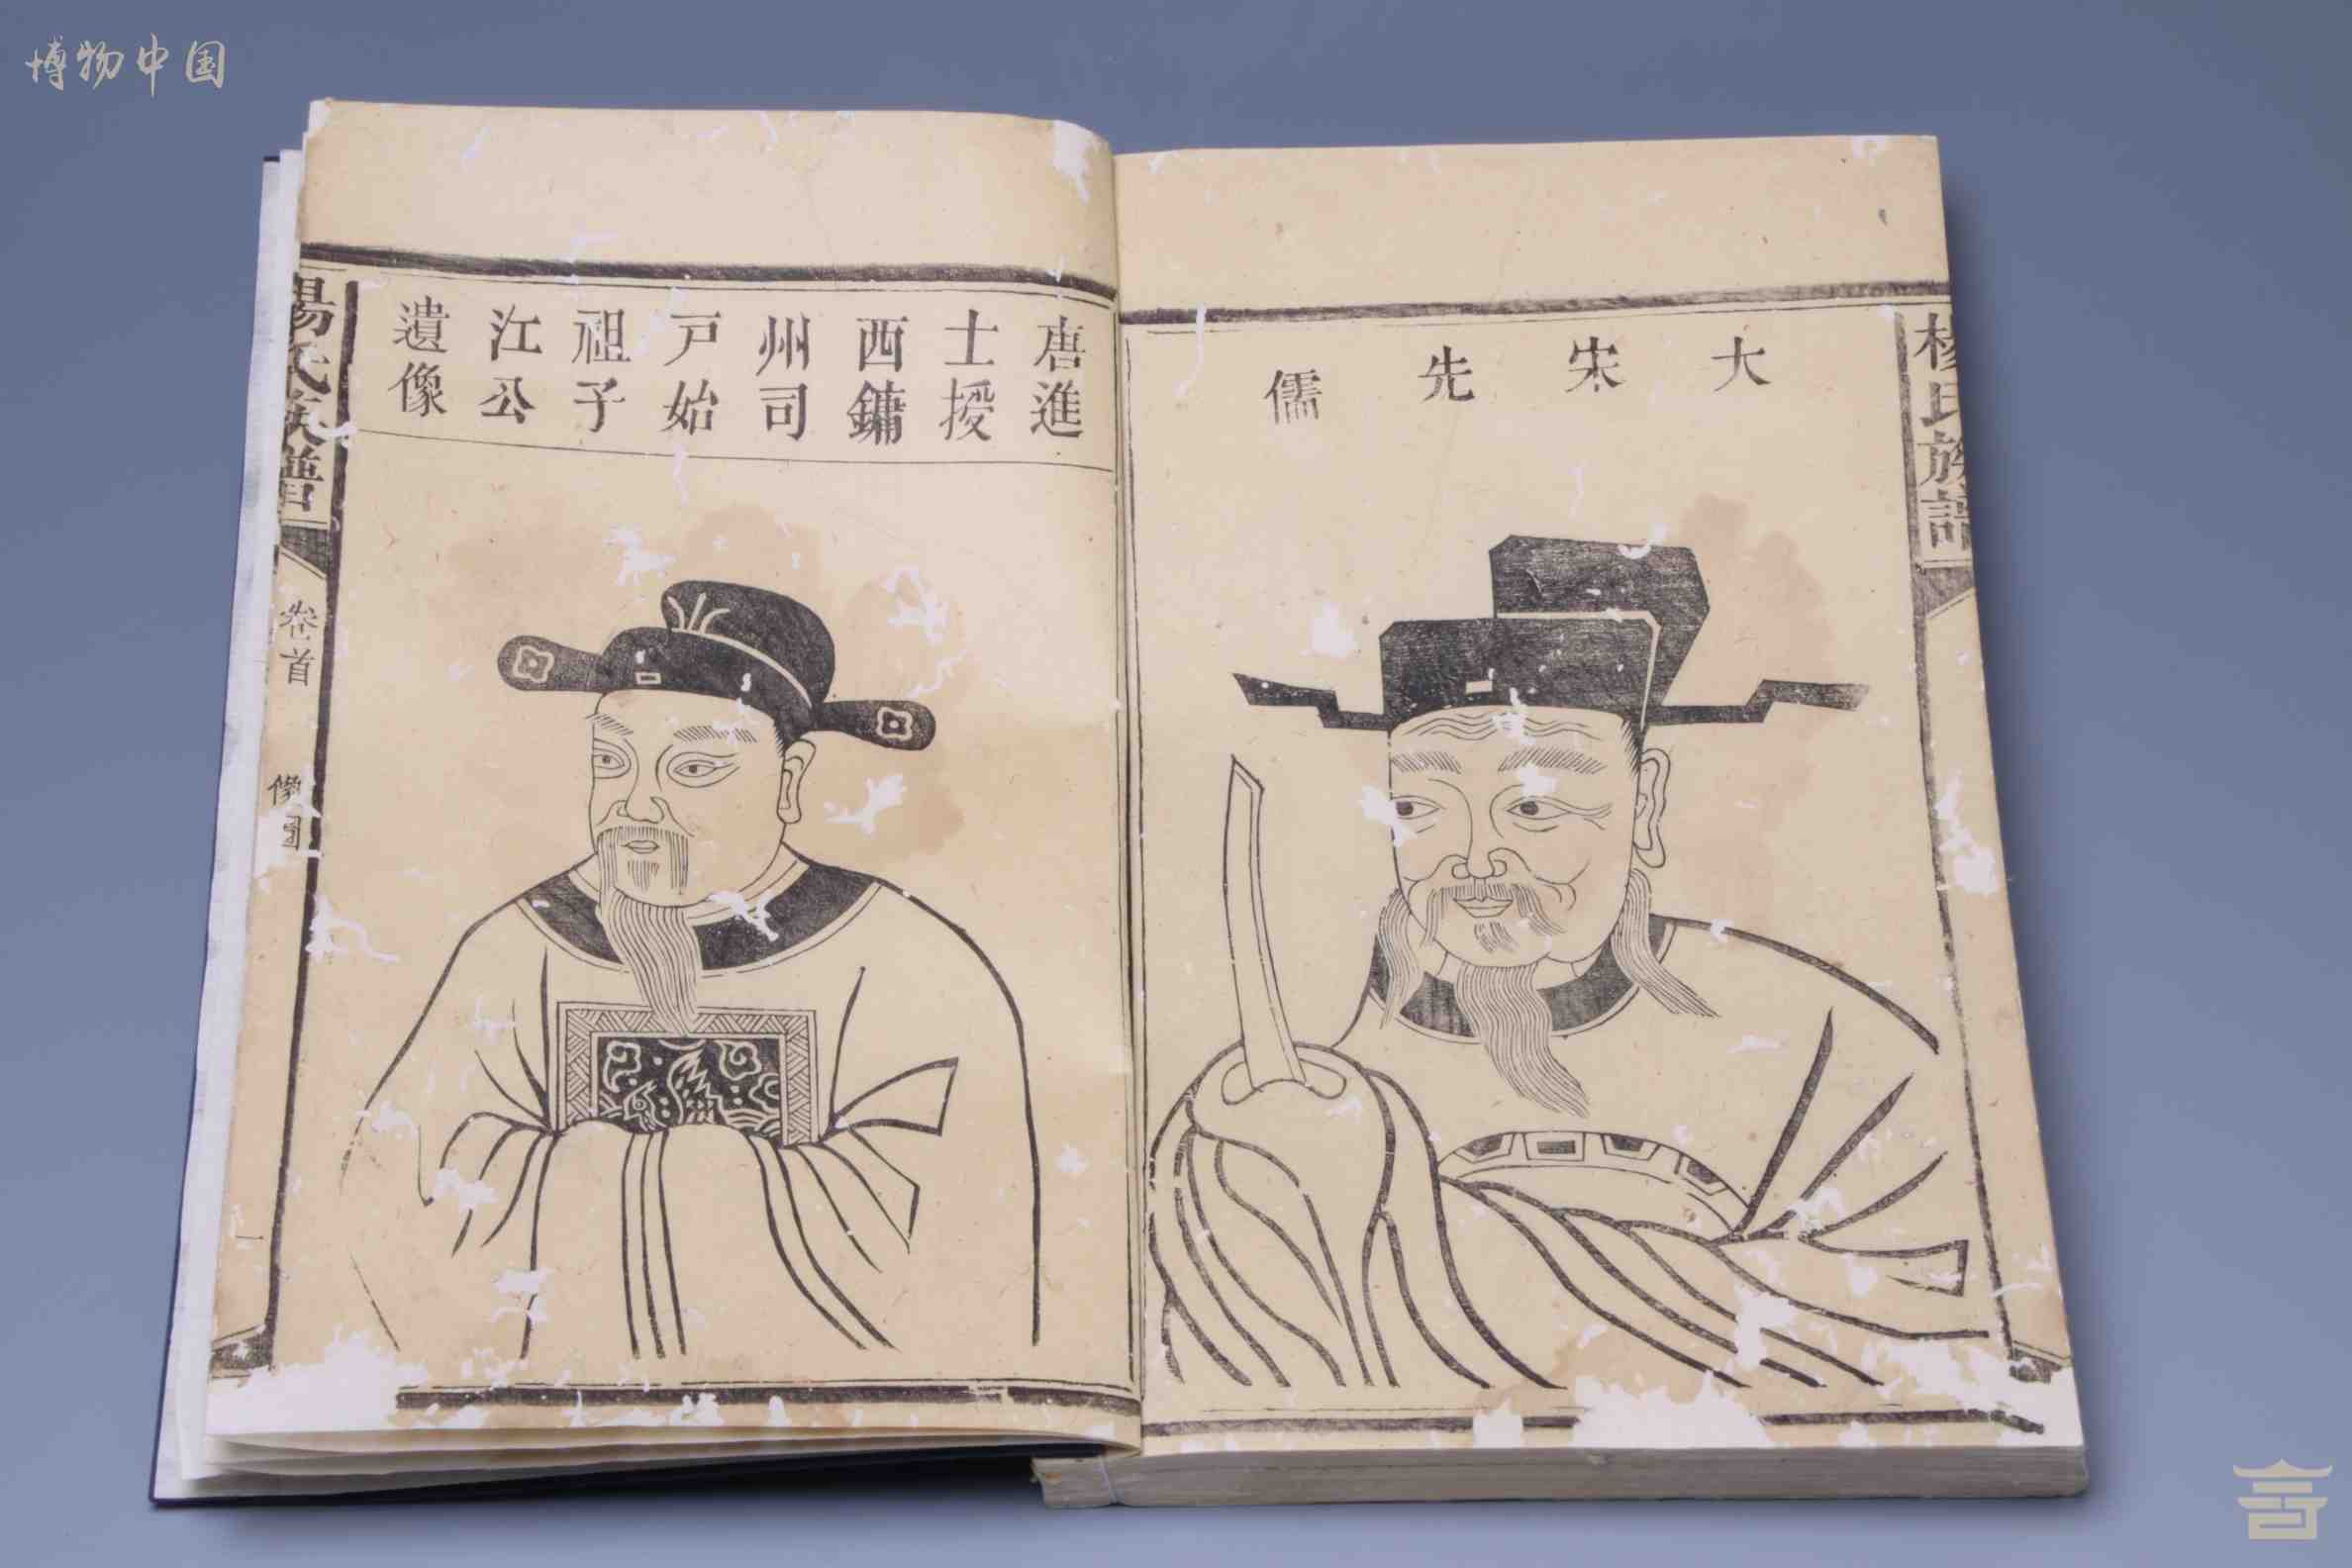 博物中国
楊氏族譜
大宋先儒
唐進
士授
西鏞
州司
戶始
祖子
江公
遺像
楊氏族譜
卷首
像圖
一